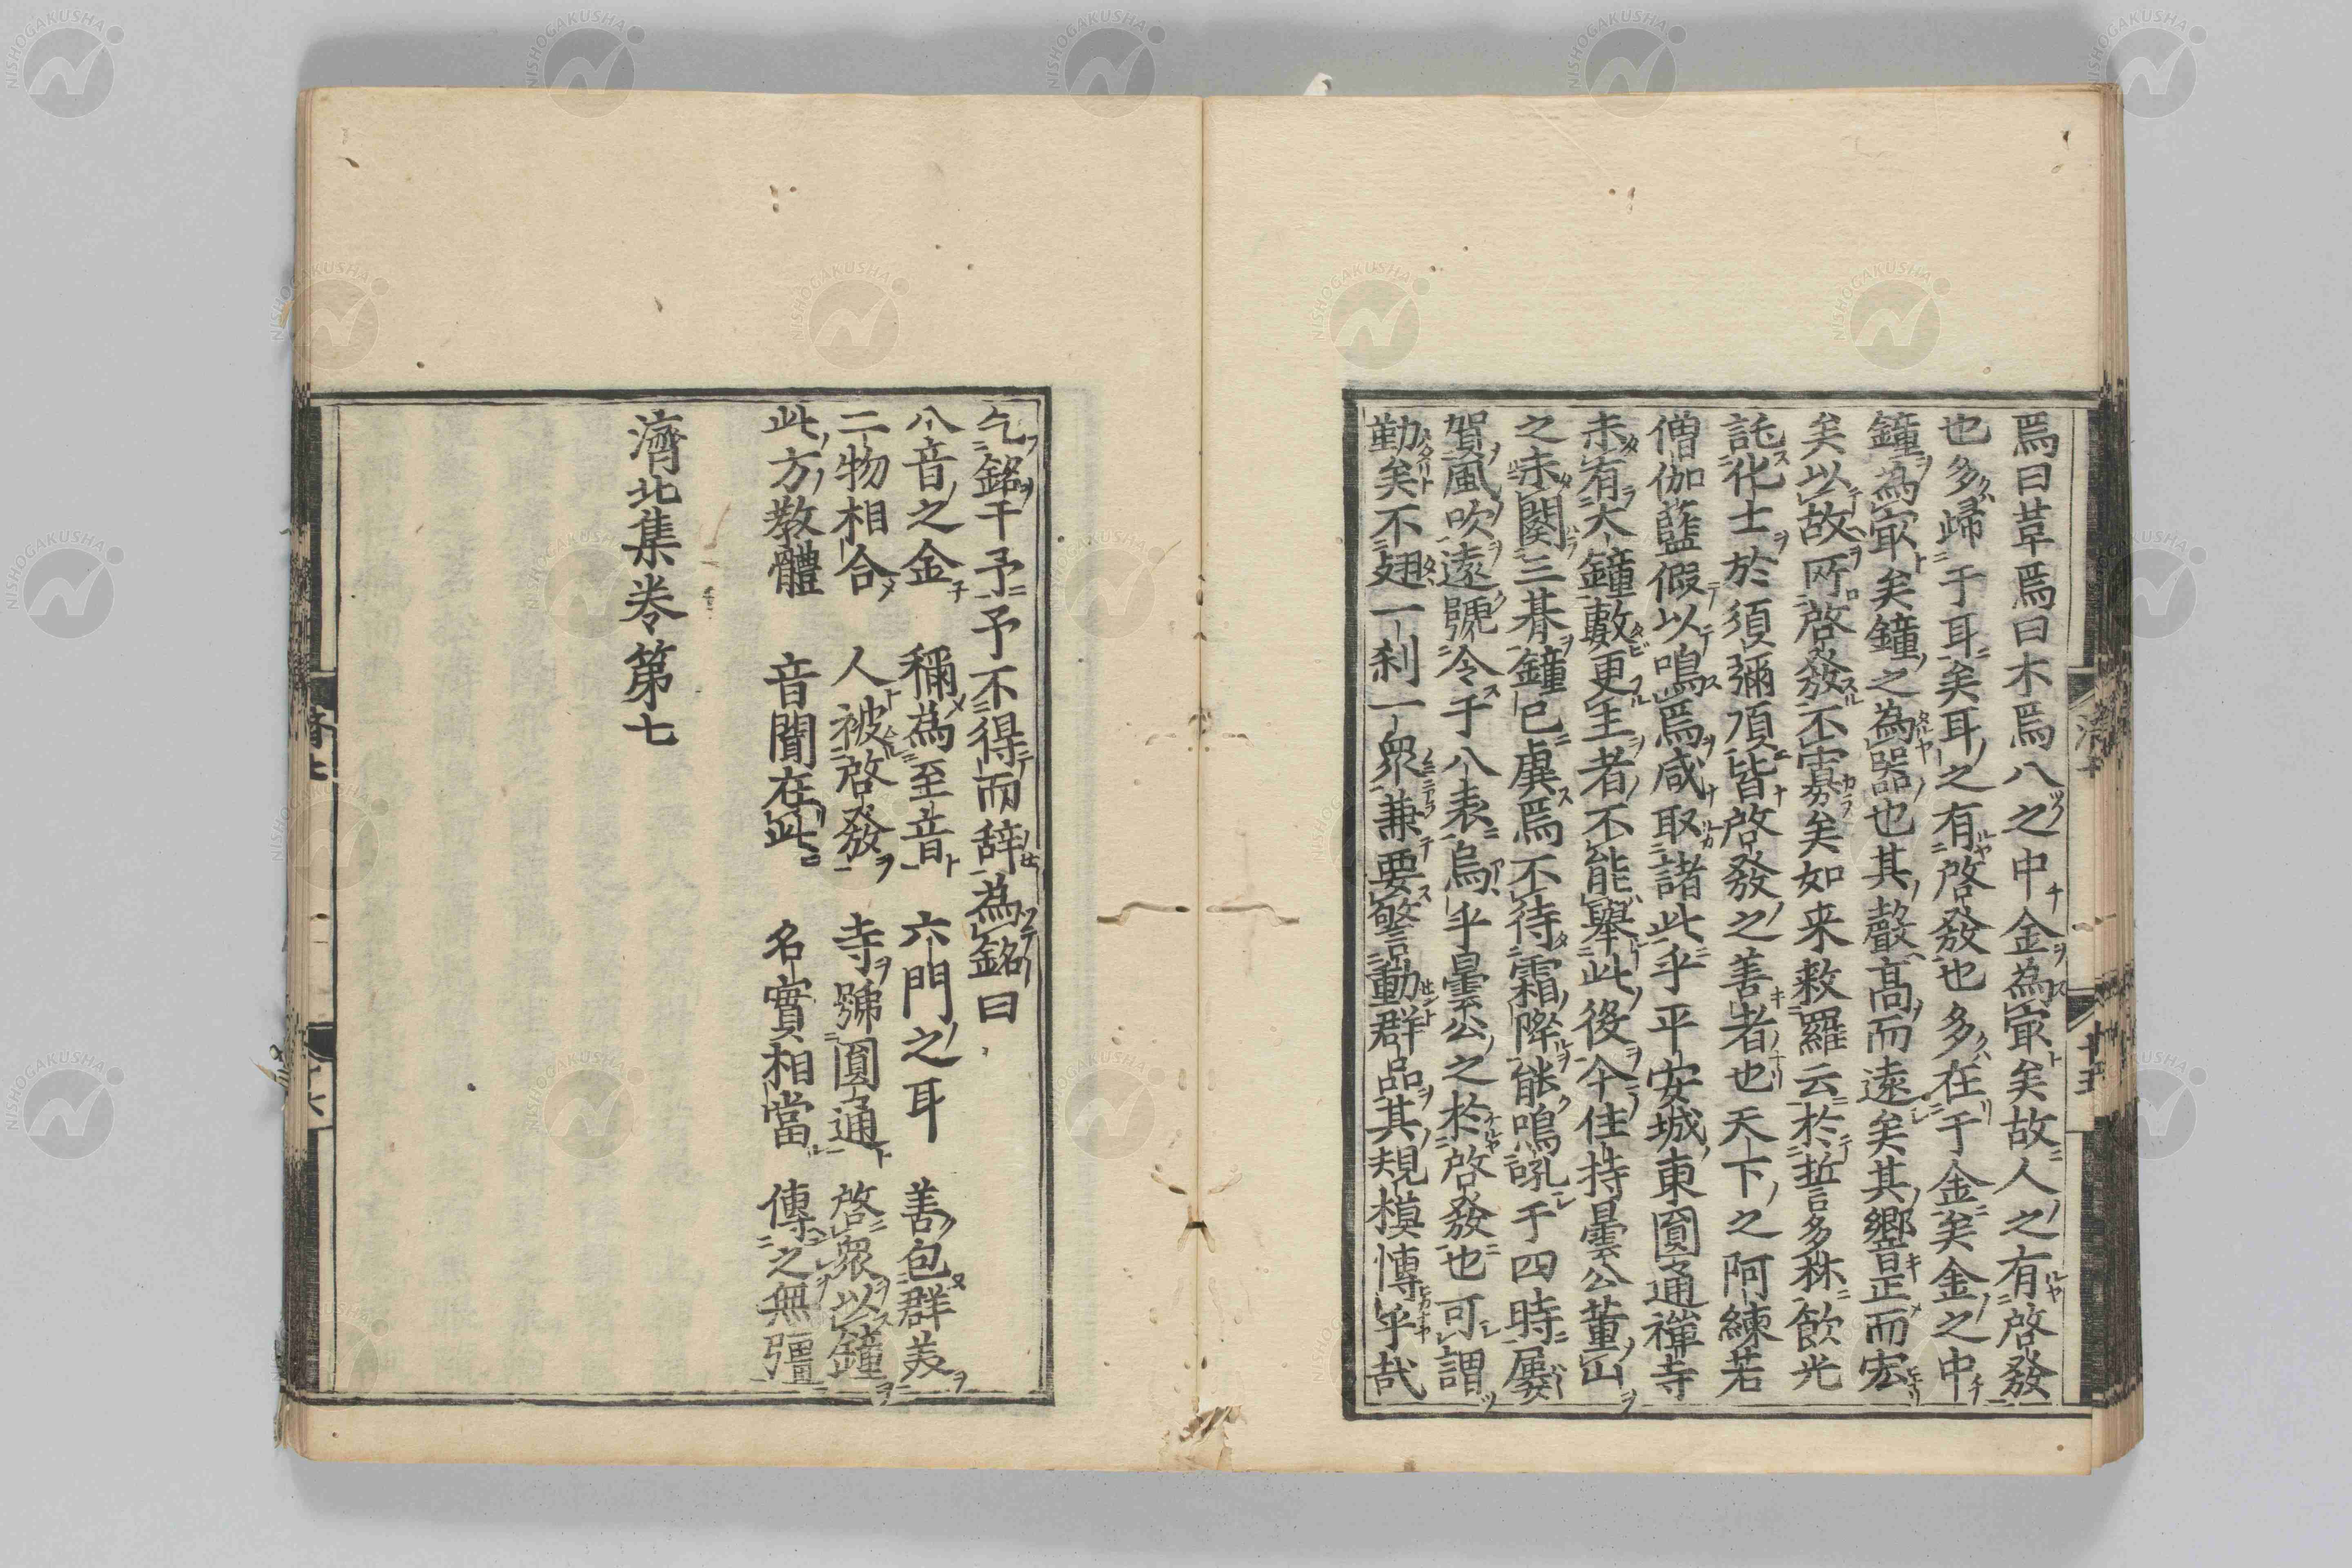 焉曰草焉曰木焉八之中金為冣矣故人之有啓發
也多歸于耳矣耳之有啓發也多在于金矣金之中
鐘為冣矣鐘之為器也其聲髙而遠矣其響正而宏
矣以故所啓發不寡矣如来救羅云於晢多秣飲光
託化士於須彌頂皆啓發之善者也天下之阿練若
僧伽藍假以鳴焉咸取諸此乎平安城東圓通禪寺
未有大鐘數更主者不能舉此後今住持曇公董山
之未閱三朞鐘已虡焉不待霜降能鳴吼于四時屢
賀風吹遠號令于八表烏乎曇公之於啓發也可謂
勤矣不翅一刹一衆兼要警動群品其規模愽乎哉
乞銘于予予不得而辞為銘曰
八音之金 稱為至音 六門之耳 善包群美
二物相合 人被啓發 寺號圓通 啓衆以鐘
此方教體 音聞在此 名實相當 傳之無彊
濟北集卷第七
十五
NISHOGAKUSHA